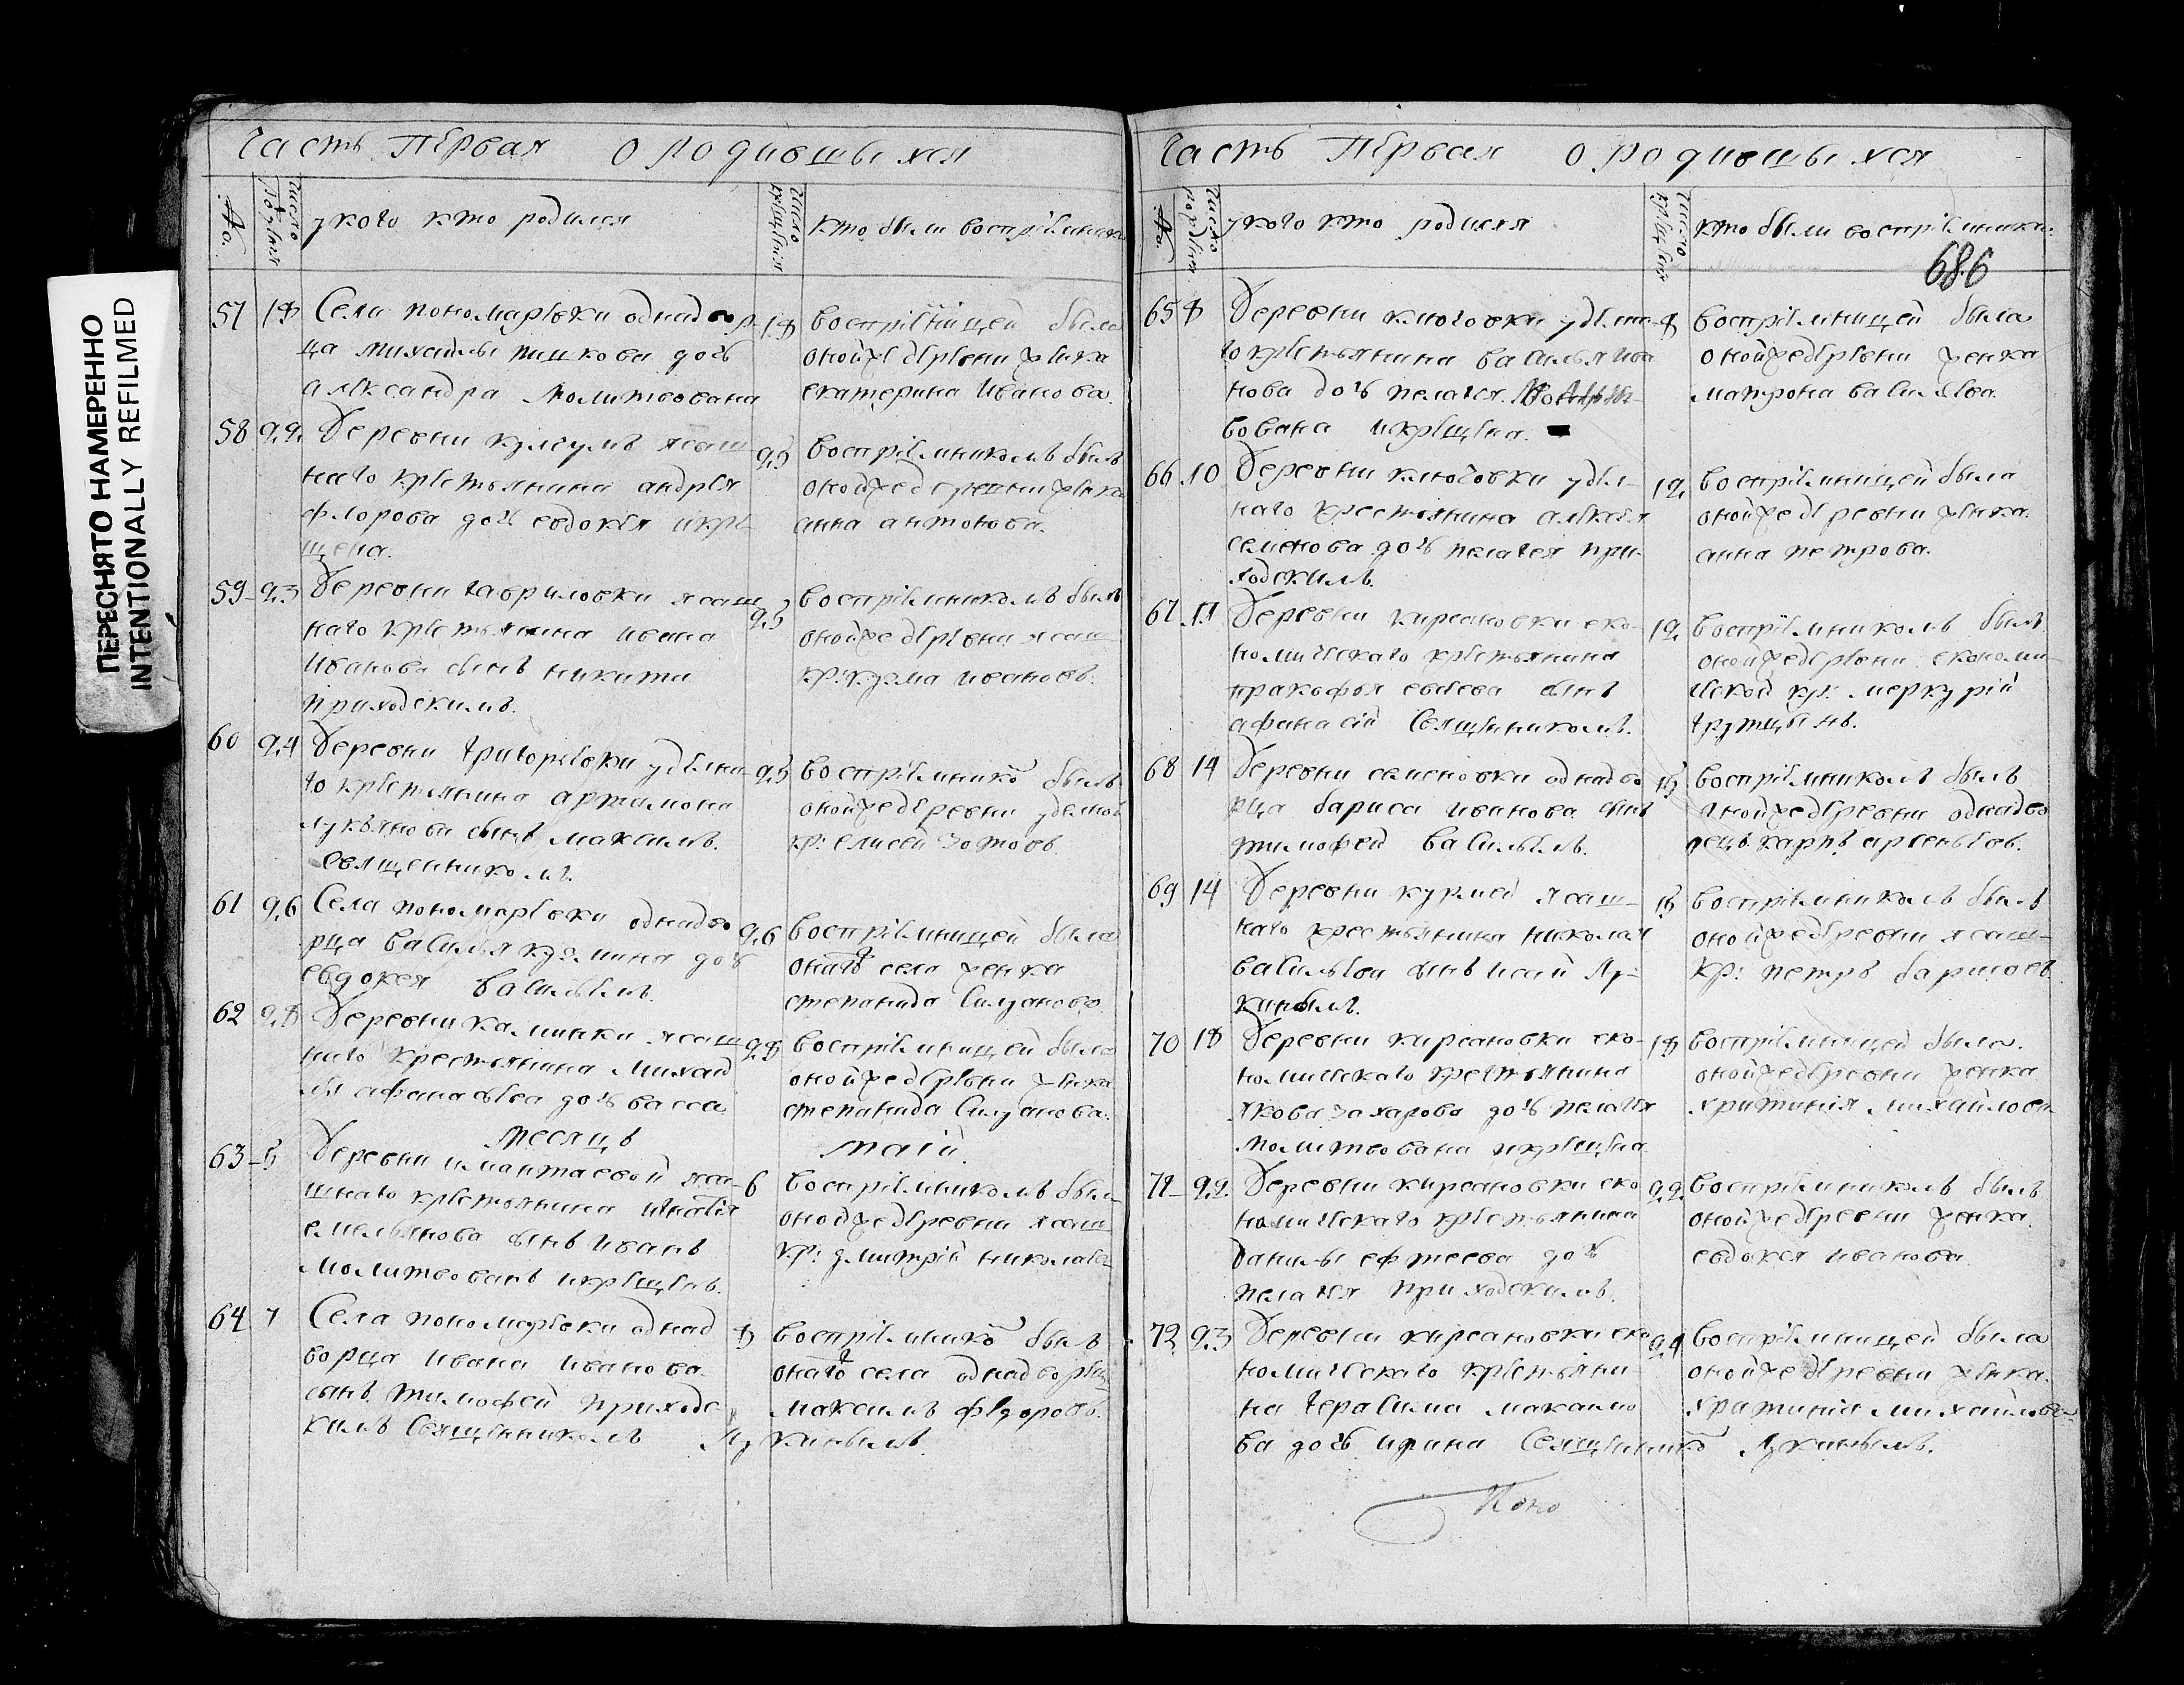 ПЕРЕСНЯТО НАМЕРЕННО
INTENTIONALLY REFILMED
Часть Первая о родившыхся
No.
Число рождения
у кого кто родился
Число крещения
кто были воспріемники
57 18 Села пономаревки однадвор- 18
ца михайлы пшкова дочь
александра молитвована
воспріемницей была
онойже деревни женка
екатерина иванова.
58 22 Деревни кулсумъ ясаш 25
наго крестьянина андрея
флорова дочь евдокея икре-
щена.
воспріемникомъ былъ
онойже деревни женка
анна антонова.
59 23 Деревни гавриловки ясаш 25
наго крестьянина ивана
иванова сынъ никита
приходскимъ.
воспріемникомъ былъ
онойже деревни ясаш
кр: кузма ивановъ.
60 24 Деревни григорьевки уделна- 25
го крестьянина артамона
лукьянова сынъ максимъ.
священникомъ.
воспріемнико былъ
онойже деревни уделнои
кр: елисей Зотовъ
61 26 Села пономаревки однадво 26
рца василья кузмина дочь
евдокея васильемъ.
воспріемницей была
онагоже села женка
степанида Силуанова
62 28 Деревни калинки ясаш 28
наго крестьянина михай
лы афанасьева дочь васса
воспріемницей была
онойже деревни женка
степанида Силуанова.
месяцъ маій
63 5 Деревни имантаевой яса- 6
шнаго крестьянина игнатія
емельянова сынъ иванъ
молитвованъ икрещенъ.
воспріемникомъ былъ
онойже деревни ясаш
кр: дмитрій николаев
64 7 Села пономаревки однад 8
ворца ивана иванова
сынъ тимофей приходс
кимъ священникомъ Лукинымъ.
воспріемнико былъ
онагоже села однадворец
максимъ федоровъ.
Часть Первая о родившыхся
No.
Число рождения
у кого кто родился
Число крещения
кто были воспріемники.
686
65 8 Деревни ключовки уделна- 8
го крестьянина василья ива
нова дочь пелагея.
вована икрещена.
воспріемницей была
онойже деревни женка
матрона васильева.
66 10 Деревни ключовки удел- 12
наго крестьянина алексея
семенова дочь пелагея при-
ходскимъ.
воспріемницей была
онойже деревни женка.
анна петрова.
67 11 Деревни кирсановки еко- 12
номическаго крестьянина
пракофья евсеева сынъ
афанасій Священникомъ.
воспріемникомъ былъ
онойже деревни економи-
ческой кр: меркурій
трутцынъ.
68 14 Деревни семеновки однадво 15
рца бариса иванова сынъ
тимофей васильемъ.
воспріемникомъ былъ
онойже деревни однадво
рецъ карпъ арсеньевъ.
69 14 Деревни курмей ясаш- 15
наго крестьянина николая
васильева сынъ исай Лу-
кинымъ.
воспріемникомъ былъ
онойже деревни ясаш-
кр: петръ барисовъ
70 18 Деревни кирсановки еко- 18
номическаго крестьянина
якова захарова дочь пелагея
молитвована икрещена
воспріемницей была.
онойже деревни женка
хритинія михайлова
71 22 Деревни кирсановки еко 22
номическаго крестьянина
данилы ефтеева дочь
пелагея приходскимъ.
воспріемникомъ былъ
онойже деревни женка
евдокея иванова.
72 23 Деревни кирсановки еко 24
номическаго крестьяни-
на герасима макаимо
ва дочь ирина Священнико Лукинымъ.
воспріемницей была
онойже деревни женка.
хритинія михайлова
Поно